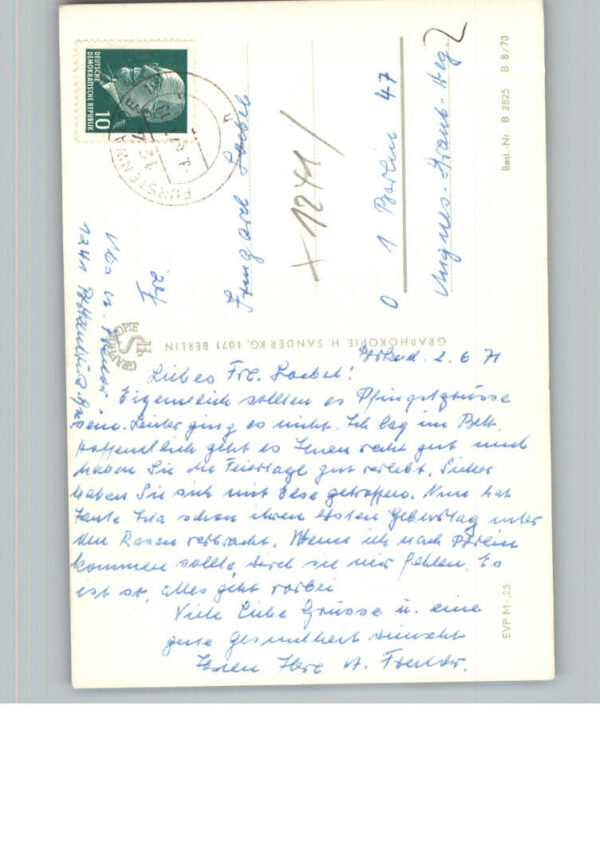 DEUTSCHE
DEMOKRATISCHE REPUBLIK
10
Frl.
Irmgard Loebel
+ 1241/
O 1 Berlin 47
Best.-Nr. B 2825 B 8/70
GRAPHOKOPIE H. SANDER KG, 1071 BERLIN
GRAPHOKOPIE
EVP M -,25
1241
2.6.71
Liebes Frl. Loebel!
Eigentlich sollten es Pfingstgrüsse
sein. Leider ging es nicht. Ich lag im Bett.
Hoffentlich geht es Ihnen recht gut und
haben Sie die Feiertage gut verlebt. Sicher
haben Sie sich mit Else getroffen. Nun hat
Tante Ida schon ihren ersten Geburtstag unter
den Rasen verbracht. Wenn ich nach Berlin
kommen sollte, wird sie mir fehlen. Es
ist so, alles geht vorbei
Viele liebe Grüsse u. eine
gute Gesundheit wünscht
Ihnen Ihre A.